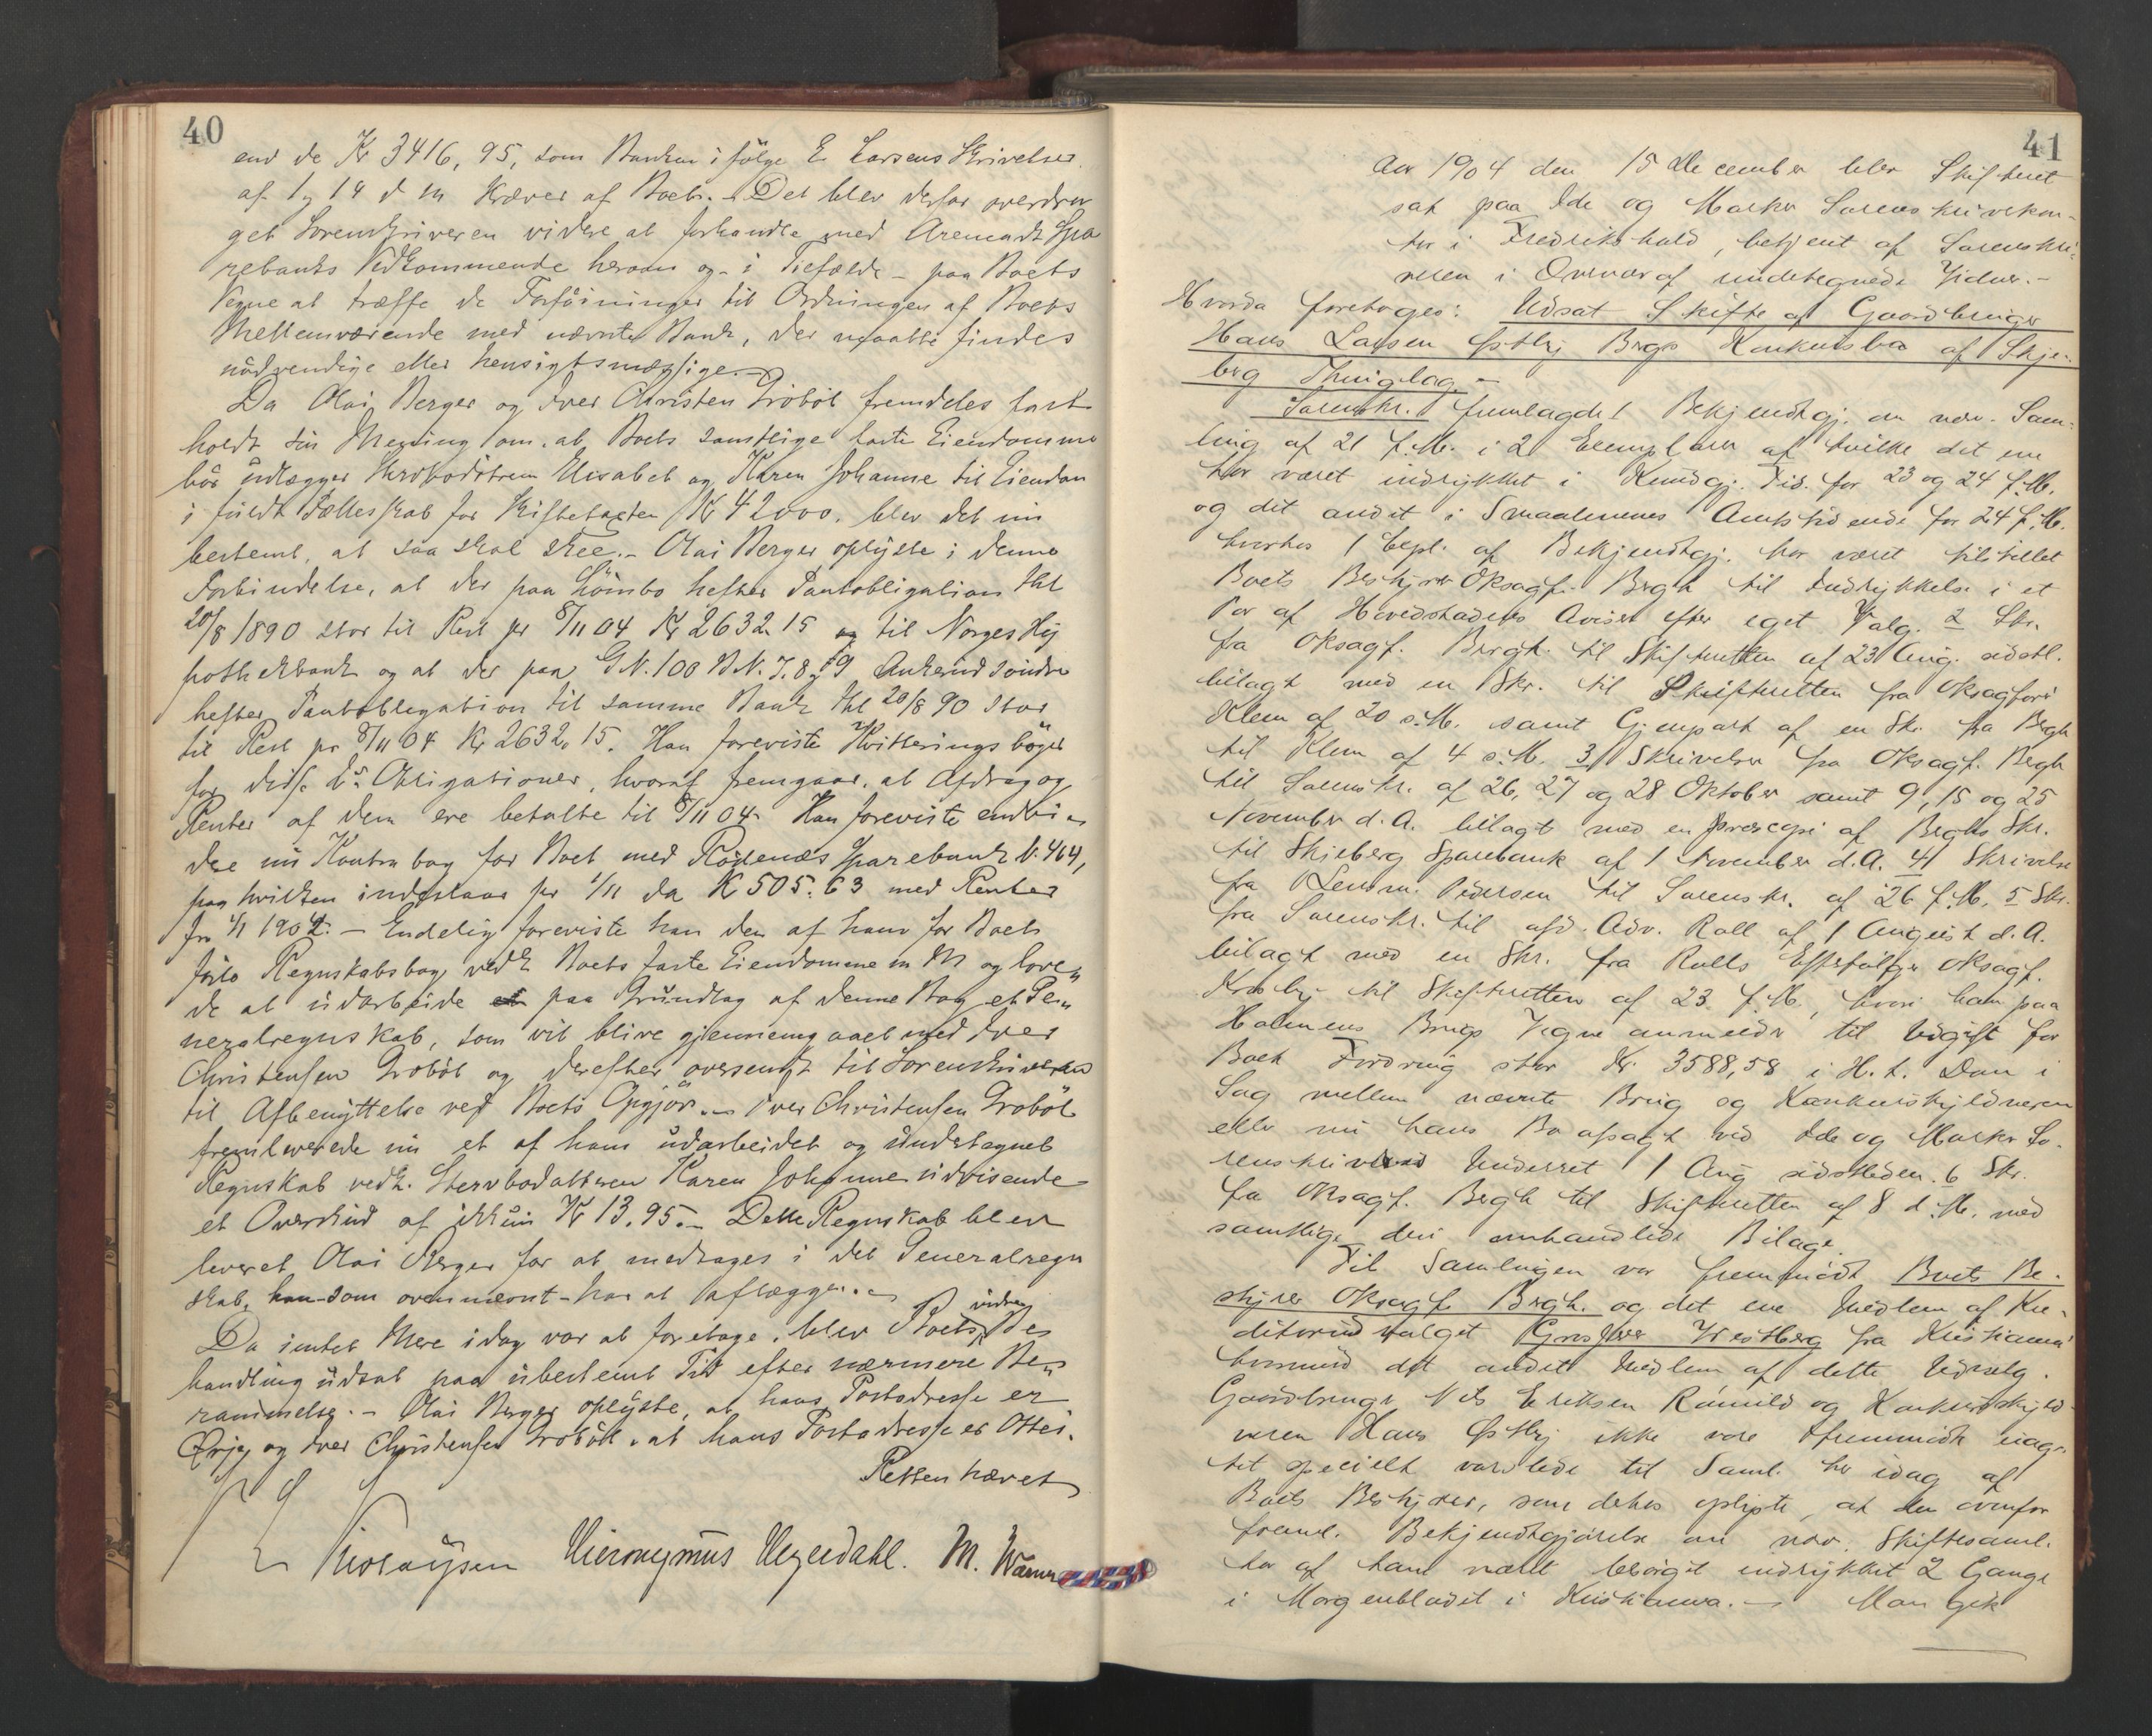 40
end de Kr 3416,95, som Banken ifølge E. Larsens Skrivelser
af 1 og 14 d M kræver af Boet. - Det blev derfor overdra-
get Sorenskriveren videre at forhandle med Aremark Spa
rebanks Vedkommende herom og - i Tilfælde - paa Boets
Vegne at træffe de Forføininger til Ordningen af Boets
Mellemværende med nævnte Bank, der maatte findes
nødvendige eller hensigtsmæssige. -
Da Olai Berger og Iver Christen Grøbøl fremdeles fast
holdt sin Mening om, at Boets samtlige faste Eiendomme
bør udlægges Stervbodøtrene Elisabet og Karen Johanne til Eiendom
i fuldt Fællesskab for Skiftetaxten Kr 42000, blev det nu
bestemt, at saa skal skee. - Olai Berger oplyste i denne
Forbindelse, at der paa Lömbo hefter Pantobligation thl
20/8 1890 stor til Rest pr 8/11 04 Kr 2632,15 og til Norges Hy
pothekbank og at der paa G.N. 100 B.N. 7, 8 og 9 Ankerud söndre
hefter Pantobligation til samme Bank thl 20/8 90 stor
til Rest pr 8/11 04 Kr 2632,15. Han foreviste Kvitteringsbøger
for disse 2de Obligationer, hvoraf fremgaar, at Afdrag og
Renter af dem ere betalte til 8/11 04. Han foreviste endvi-
dre nu Kontrabog for Boet med Rødenæs Sparebank N. 464,
paa hvilken indestaar pr 1/11 da Kr 505.63 med Renter
fra 1/1 1904. - Endelig foreviste han den af ham for Boet
førte Regnskabsbog vedk Boets faste Eiendomme m M og love-
de at udarbeide paa Grundlag af denne Bog et Ge-
neralregnskab, som vil blive gjennemgaaet med Iver
Christensen Grøbøl og derefter oversendt til Sorenskriveren
til Afbenyttelse ved Boets Opgjør. - Iver Christensen Grøbøl
fremleverede nu et af ham udarbeidet og undertegnet
Regnskab vedk. Stervbodatteren Karen Johanne udvisende
et Overskud af ikkun Kr 13.95. - Dette Regnskab blev
leveret Olai Berger for at medtages i det Generalregn
skab, han - som ovennævnt - har at aflægge. -
Da intet Mere idag var at foretage, blev Boets videre Be
handling udsat paa ubestemt Tid efter nærmere Be-
rammelse. - Olai Berger oplyste, at hans Postadresse er
Ørje og Iver Christensen Grøbøl, at hans Postadresse er Ottei.
Retten hævet
Nicolaysen Hieronymus Heyerdahl. M. Warner
41
Aar 1904 den 15 December blev Skifteret
sat paa Idde og Marker Sorenskriverkon-
tor i Fredrikshald, betjent af Sorenskri-
veren i Overvær af undertegnede Vidner. -
Hvorda foretoges: Udsat Skifte af Gaardbruger
Hans Larsen Østby Bergs Konkursbo af Skje-
berg Thinglag. -
Sorenskr. fremlagde 1 Bekjendtgj. om nærv. Sam-
ling af 21 f.M. i 2 Exemplarer af hvilke det ene
har været indrykket i Kundgj. Tid. for 23 og 24 f.M.
og det andet i Smaalenenes Amtstidende for 24 f.M.
hvorhos 1 Expl. af Bekjendtgj. har været tilstillet
Boets Bestyrer Oksagf. Bergh til Indrykkelse i et
Par af Hovedstadens Aviser efter eget Valg. 2 Skr.
fra Oksagf. Bergh til Skifteretten af 23 Aug. sidstl.
bilagt med en Skr. til Skifteretten fra Oksagfører
Klem af 20 s.M. samt Gjenpart af en Skr. fra Bergh
til Klem af 4 s.M. 3 Skrivelser fra Oksagf. Bergh
til Sorenskr. af 26, 27 og 28 Oktober samt 9, 15 og 25
November d.A. bilagt med en Prescopi af Berghs Skr.
til Skjeberg Sparebank af 1 November d.A. 4 Skrivelse
fra Lensm. Pedersen til Sorenskr. af 26 f.M. 5 Skr.
fra Sorenskr. til afd. Adv. Roll af 1 August d.A.
bilagt med en Skr. fra Rolls Efterfølger Oksagf.
Kroby til Skifteretten af 23 f.M., hvori han paa
Halmens Brugs Vegne anmelder til Udgift for
Boet Fordring stor Kr. 3588,58 i H. t. Dom i
Sag mellem nævnte Brug og Konkursskyldneren
eller nu hans Bo afsagt ved Idde og Marker So-
renskriveries Underret 1 Aug sidstleden. 6 Skr.
fra Oksagf. Bergh til Skifteretten af 8 d.M. med
samtlige deri omhandlede Bilage.
Til Samlingen var fremmødt Boets Be-
styrer Oksagf. Bergh. og det ene Medlem af Kre-
ditorudvalget Grosserer Westberg fra Kristiania
hvorimod det andet Medlem af dette Udvalg.
Gaardbruger Nils Eriksen Rømuld og Konkursskyld-
neren Hans Østby ikke vare fremmødt uag-
tet specielt varslede til Saml. her idag af
Boets Bestyrer, som derhos oplyste, at den ovenfor
freml. Bekjendtgjørelse om nærv. Skiftesaml.
har af ham været besørget indrykket 2 Gange
i Morgenbladet i Kristiania. - Man gik